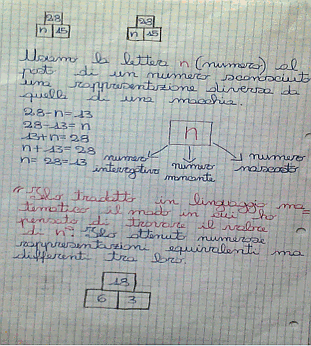 28 28
n 15 n 15
Usiamo la lettera n (numero) al
post di un numero sconosciuto
una rappresentazione diversa da
quella di una macchia.
28-n=13
28-13=n
13+n=28
n+13=28
n=28-13
n
numero interrogativo
numero mancante
numero nascosto
"Ho tradotto in linguaggio ma=
tematico il modo in cui ho
pensato di trovare il valore
di n". Ho ottenuto numerose
rappresentazioni equivalenti ma
differenti tra loro.
18
6 3